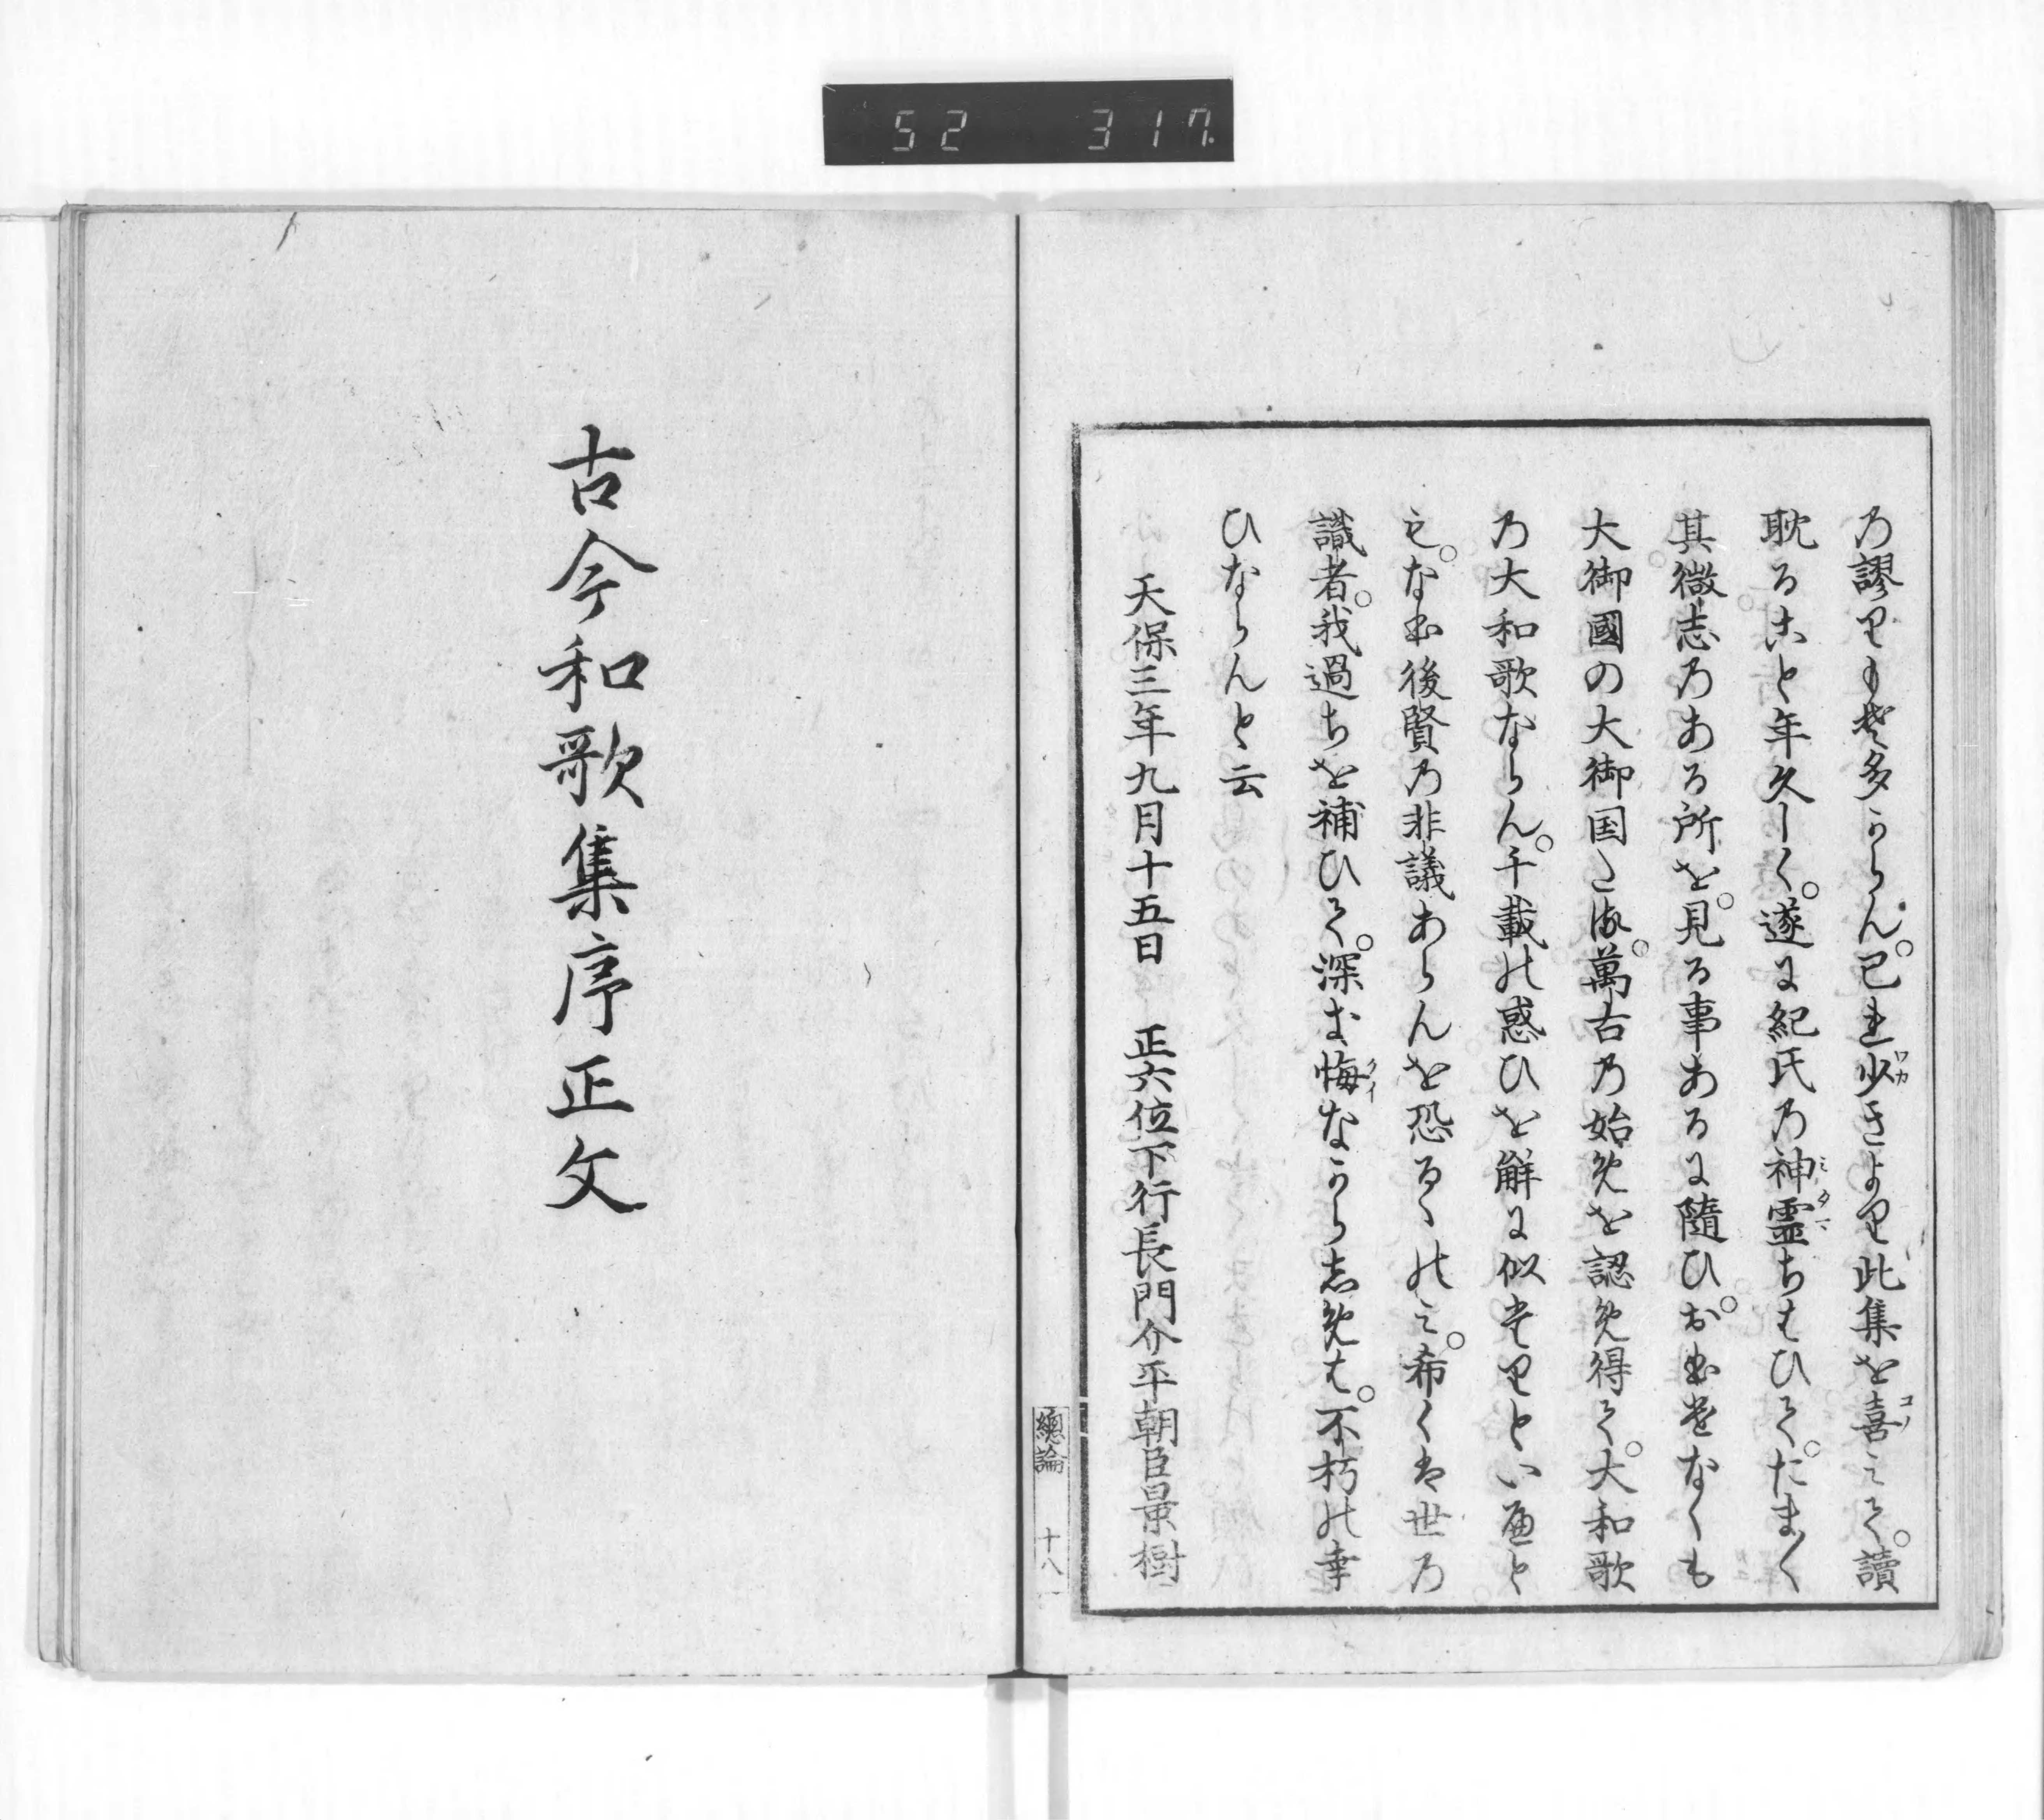 52 317
乃謬りもぞ多からん。已れ少きより此集を喜みて。讀
ワカ
コノ
耽ること年久しく。遂に紀氏乃神霊ちはひて。たま〱
ミタマ
其微志乃ある所を。見る事あるに隨ひ。おふけなくも
大御國の大御国たる。萬古乃始めを認め得て。大和歌
乃大和歌ならん。千載の惑ひを解に似たりといへと
も。なほ後賢乃非議あらんを恐るゝのみ。希くは世乃
識者。我過ちを補ひて。深き悔なからしめは。不朽の幸
クイ
ひならんと云
天保三年九月十五日 正六位下行長門介平朝臣景樹
總論 十八
古今和歌集序正文